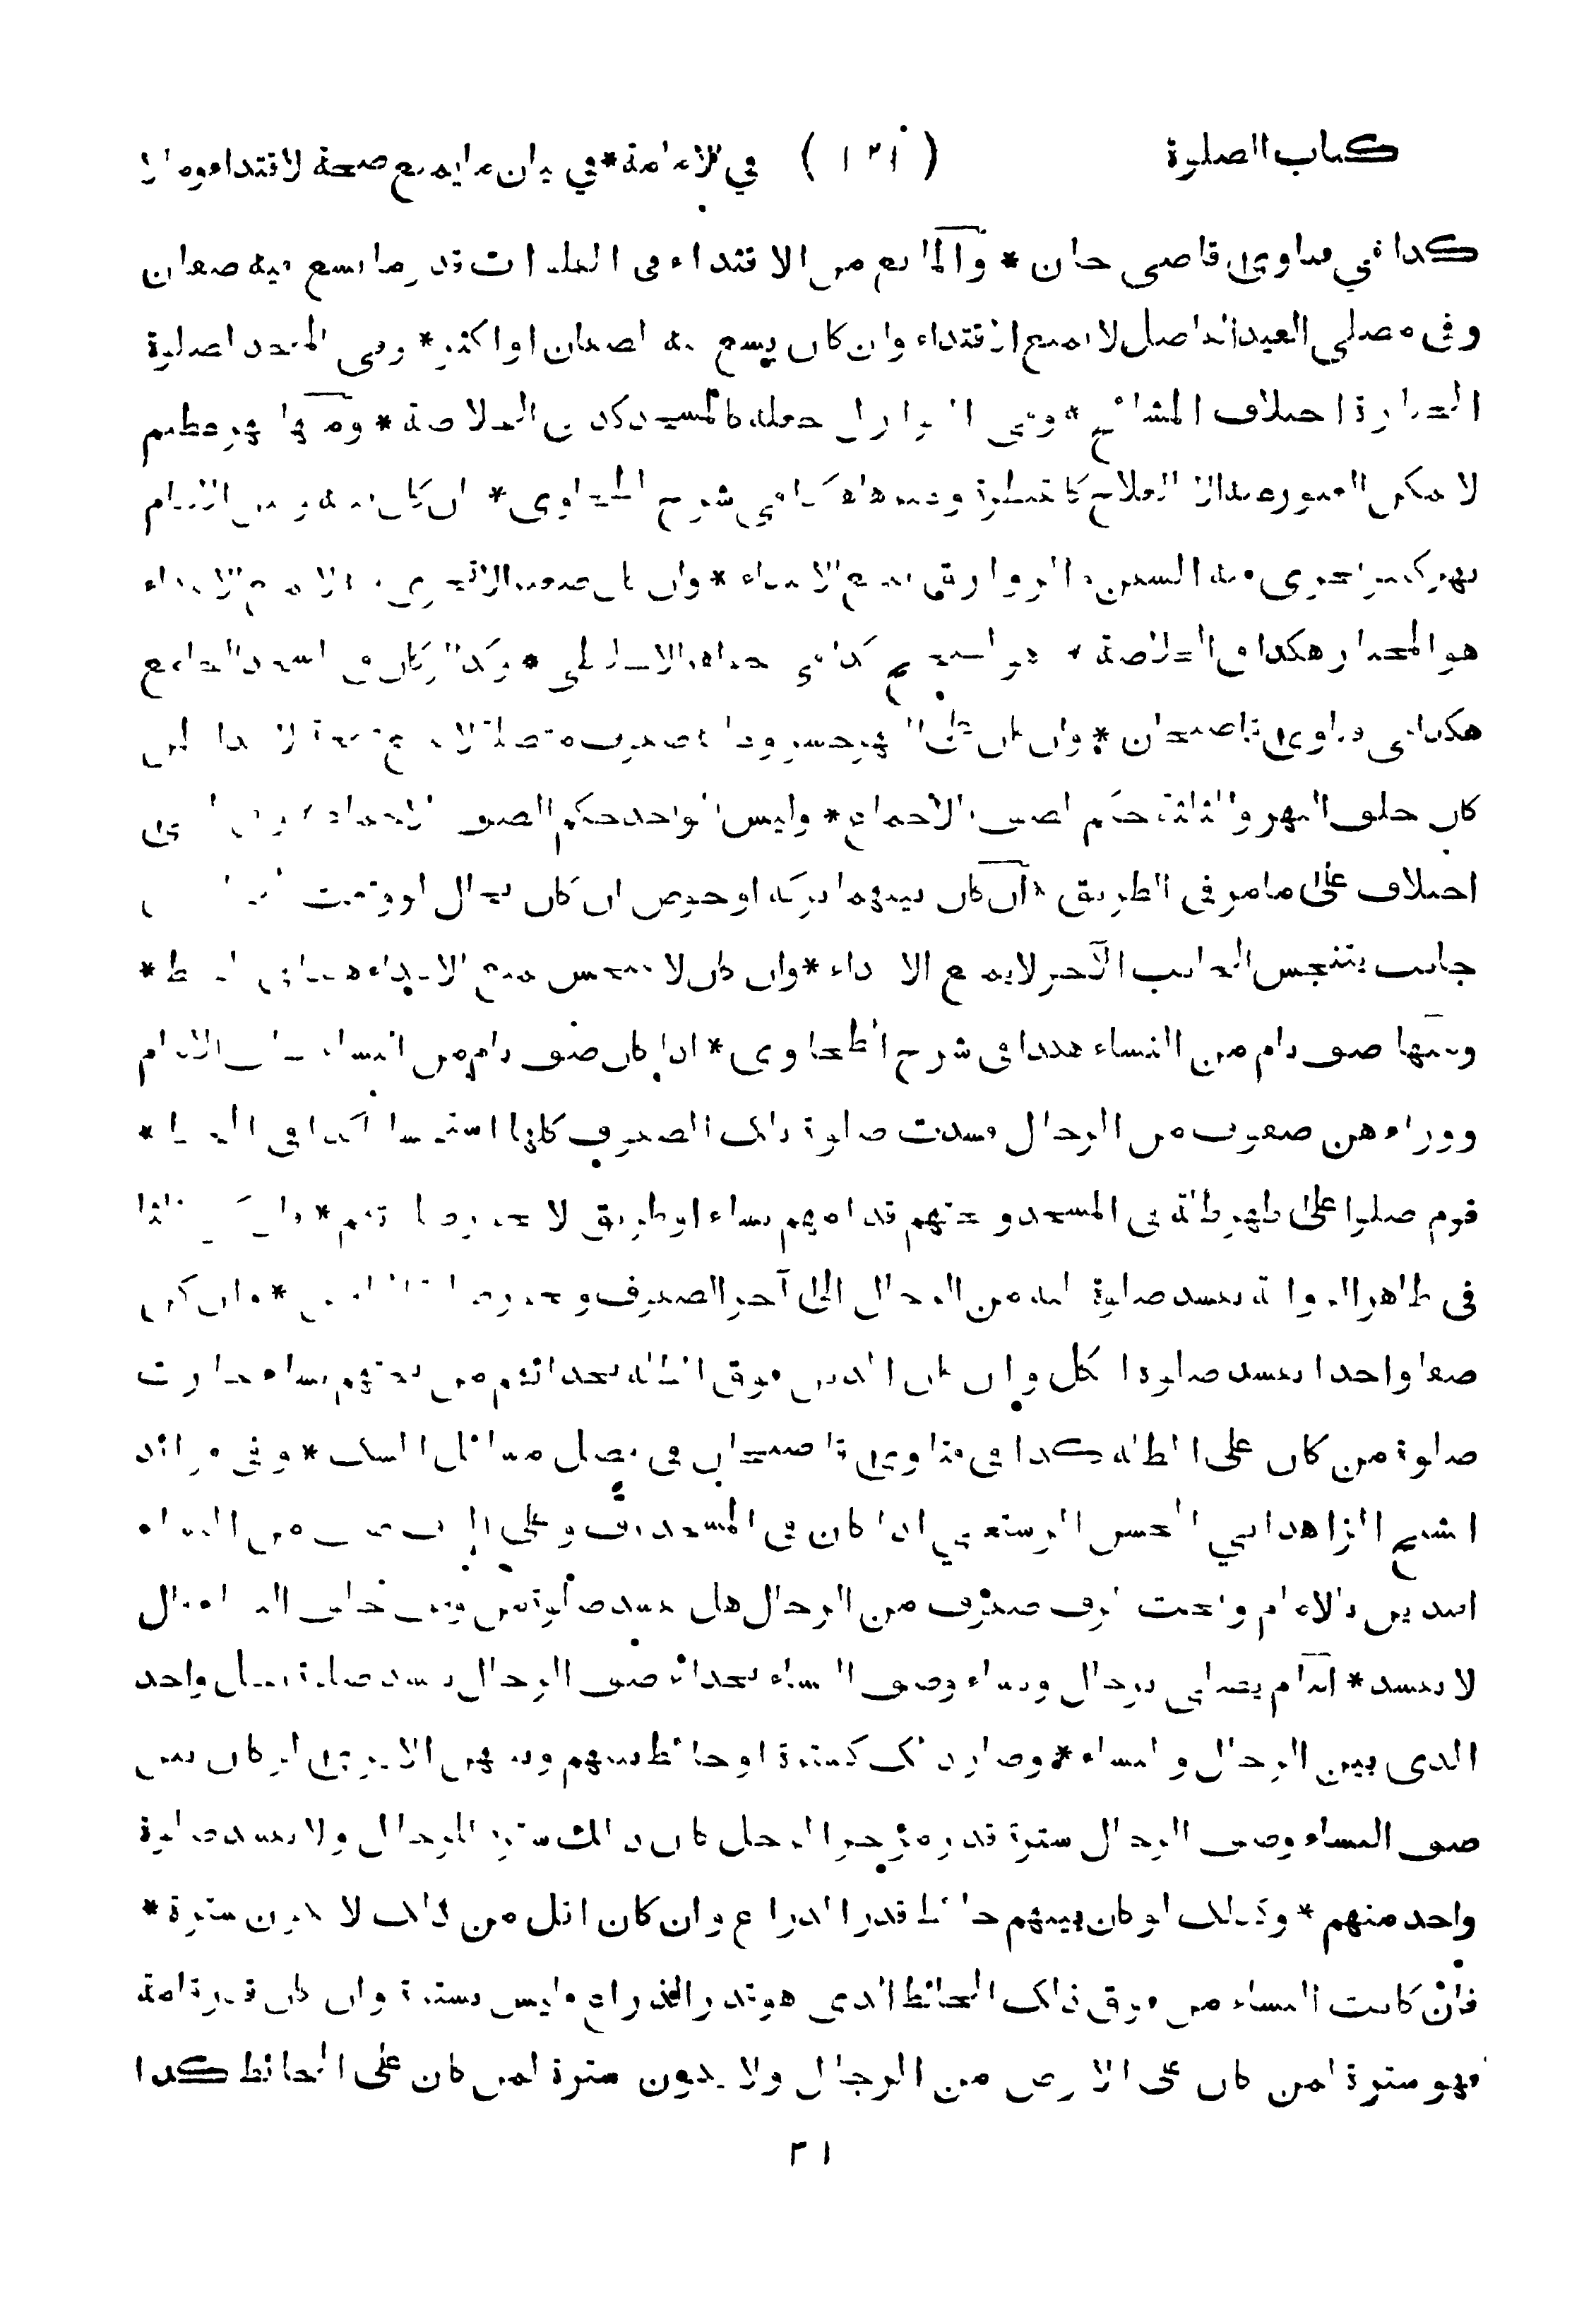 كتاب الصلوة ( ١٢١ ) في الامامة * في بيان ما يمنع صحة الاقتداء وما لا
كذا في فتاوى قاضي خان * والمانع من الاقتداء في الفلوات قدر ما يسع فيه صفان
وفي مصلى العيد الفاصل لا يمنع الاقتداء وان كان يسع فيه الصفان او اكثر * وفي المتخذ لصلوة
الجنازة اختلاف المشائخ * وفي النوازل جعله كالمسجد كذا في الخلاصة * ومنها نهر عظيم
لا يمكن العبور عنه الا بالعلاج كالقنطرة وغيرها هكذا في شرح الطحاوي * ان كان بينه وبين الامام
نهر كبير يجري فيه السفن والزوارق يمنع الاقتداء * وان كان صغيرا لا تجري فيه لا يمنع الاقتداء
هو المختار هكذا في الخلاصة * هو الصحيح كذا في جواهر الاخلاطي * وكذا لو كان في المسجد الجامع
هكذا في فتاوى قاضيخان * وان كان على النهر جسر وعليه صفوف متصلة لا يمنع
كان خلف النهر وللثلثة حكم الصف بالاجماع * وليس للواحد حكم الصف بالاجماع وفي المثنى
اختلاف على ما مر في الطريق * ان كان بينهما بركة او حوض ان كان بحال لو وقعت
جانب يتنجس الجانب الآخر لا يمنع الاقتداء * وان كان لا يتنجس يمنع الاقتداء هكذا في المحيط *
ومنها صف تام من النساء هكذا في شرح الطحاوي * اذا كان صف تام من النساء خلف الامام
ووراءهن صفوف من الرجال فسدت صلوة تلك الصفوف كلها استحسانا كذا في المحيط *
قوم صلوا على ظهر ظلة في المسجد وتحتهم قدامهم نساء او طريق لا تجوز صلوتهم * فان كن ثلثا
في ظاهر الرواية تفسد صلوة ثلثة من الرجال الى آخر الصفوف وتجوز * وان كن
صفا واحدا تفسد صلوة الكل وان كان الذين فوق الظلة بحذائهم من تحتهم نساء جازت
صلوة من كان على الظلة كذا في فتاوى قاضيخان في فصل مسائل الشك * وفي فوائد
الشيخ الزاهد ابي الحسن الرستغفني اذا كان في المسجد رف وعلى الرف صف من النساء
اقتدين بالامام وتحت الرف صفوف من الرجال هل تفسد صلوة من وقف خلف النساء قال
لا تفسد * امام يصلي برجال ونساء وصف النساء بحذاء صف الرجال تفسد صلوة رجل واحد
الذي بين الرجال والنساء * وصار ذلك كسترة او حائط بينهم وبينهن الا يرى ان لو كان بين
صف النساء وصف الرجال سترة قدر مؤخر الرحل كان ذلك سترة للرجال ولا تفسد صلوة
واحد منهم * وكذلك لو كان بينهم حائط قدر الذراع وان كان اقل من ذلك لا يكون سترة *
فان كانت النساء من فوق ذلك الحائط الذي هو قدر الذراع فليس بسترة وان كان قدر قامة
فهو سترة لمن كان على الارض من الرجال ولا يكون سترة لمن كان على الحائط كذا
٣١